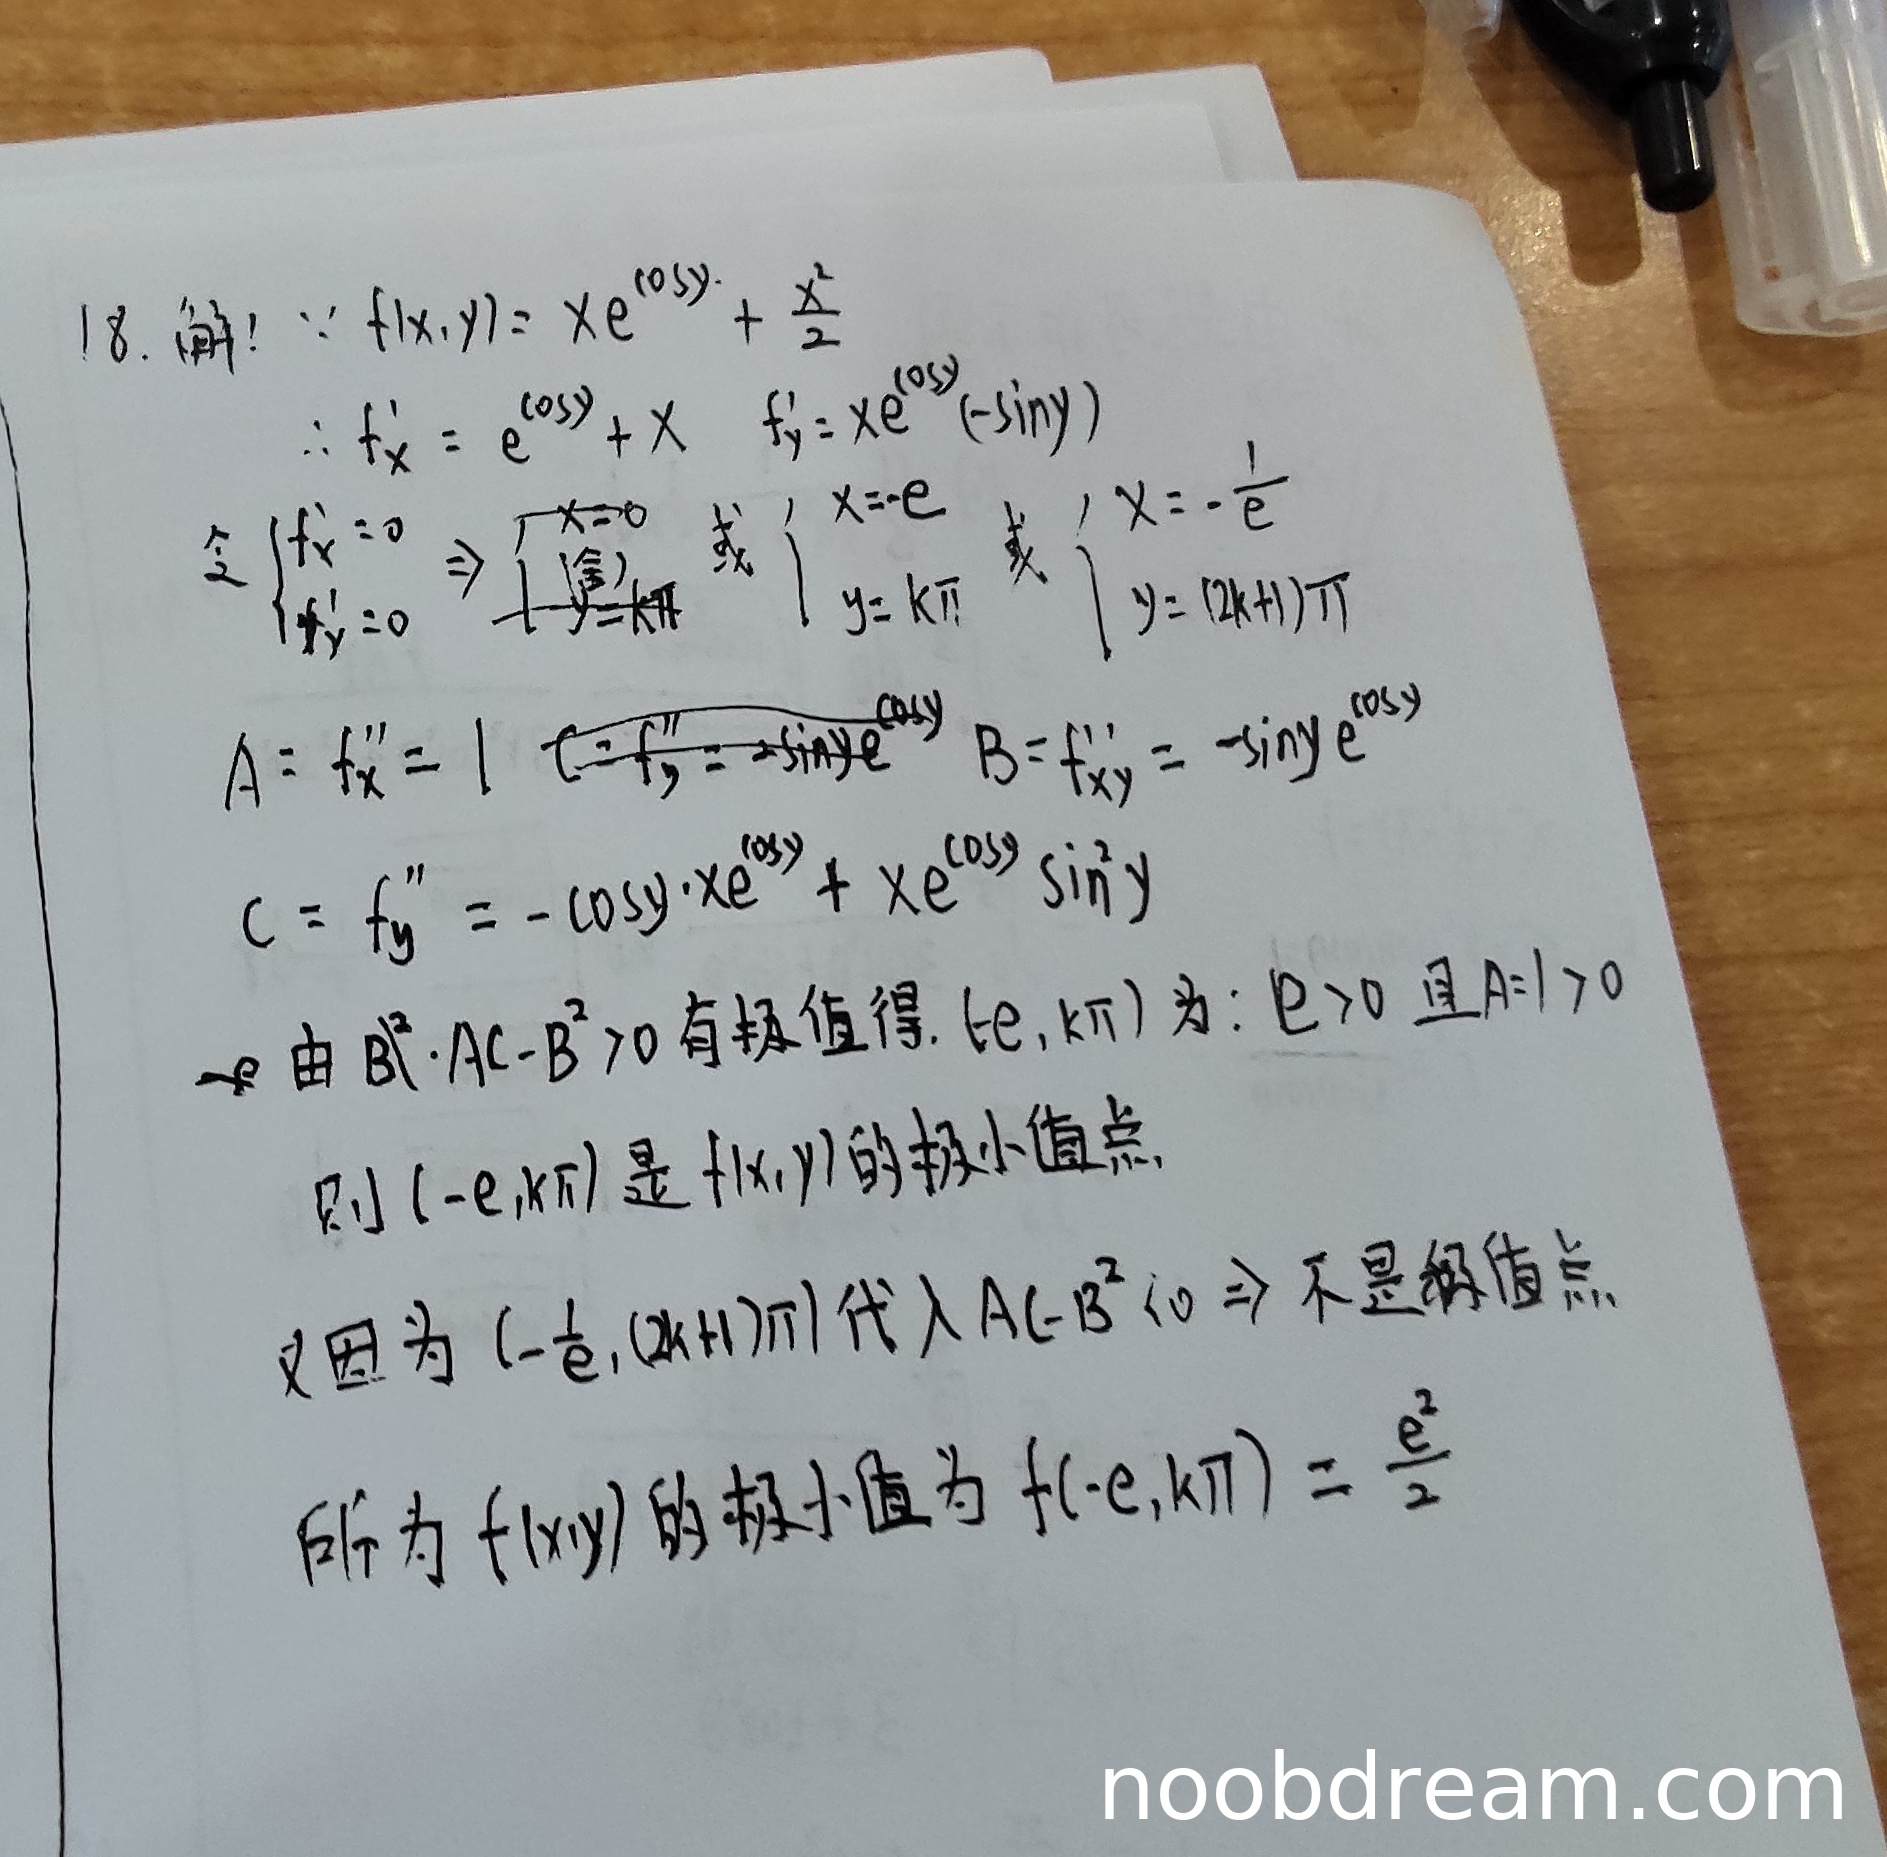 18. 解: ∵ f(x,y) = xe^cosy + x²/2
∴ f'x = e^cosy + x f'y = xe^cosy (-siny)
令 { f'x = 0 f'y = 0 ⇒ { x=0 (舍) y=kπ 或 { x=-e y=kπ 或 { x=-1/e y=(2k+1)π
A = f''x = 1 C = f''y = -sinye^cosy B = f''xy = -sinye^cosy
C = f''y = -cosy·xe^cosy + xe^cosy sin²y
由 B² · AC-B²>0 有极值得. (-e, kπ) 为: e>0 且A=1>0
则 (-e, kπ) 是 f(x,y) 的极小值点.
又因为 (-1/e, (2k+1)π) 代入 AC-B²<0 ⇒ 不是极值点.
所为 f(x,y) 的极小值为 f(-e, kπ) = e²/2
noobdream.com